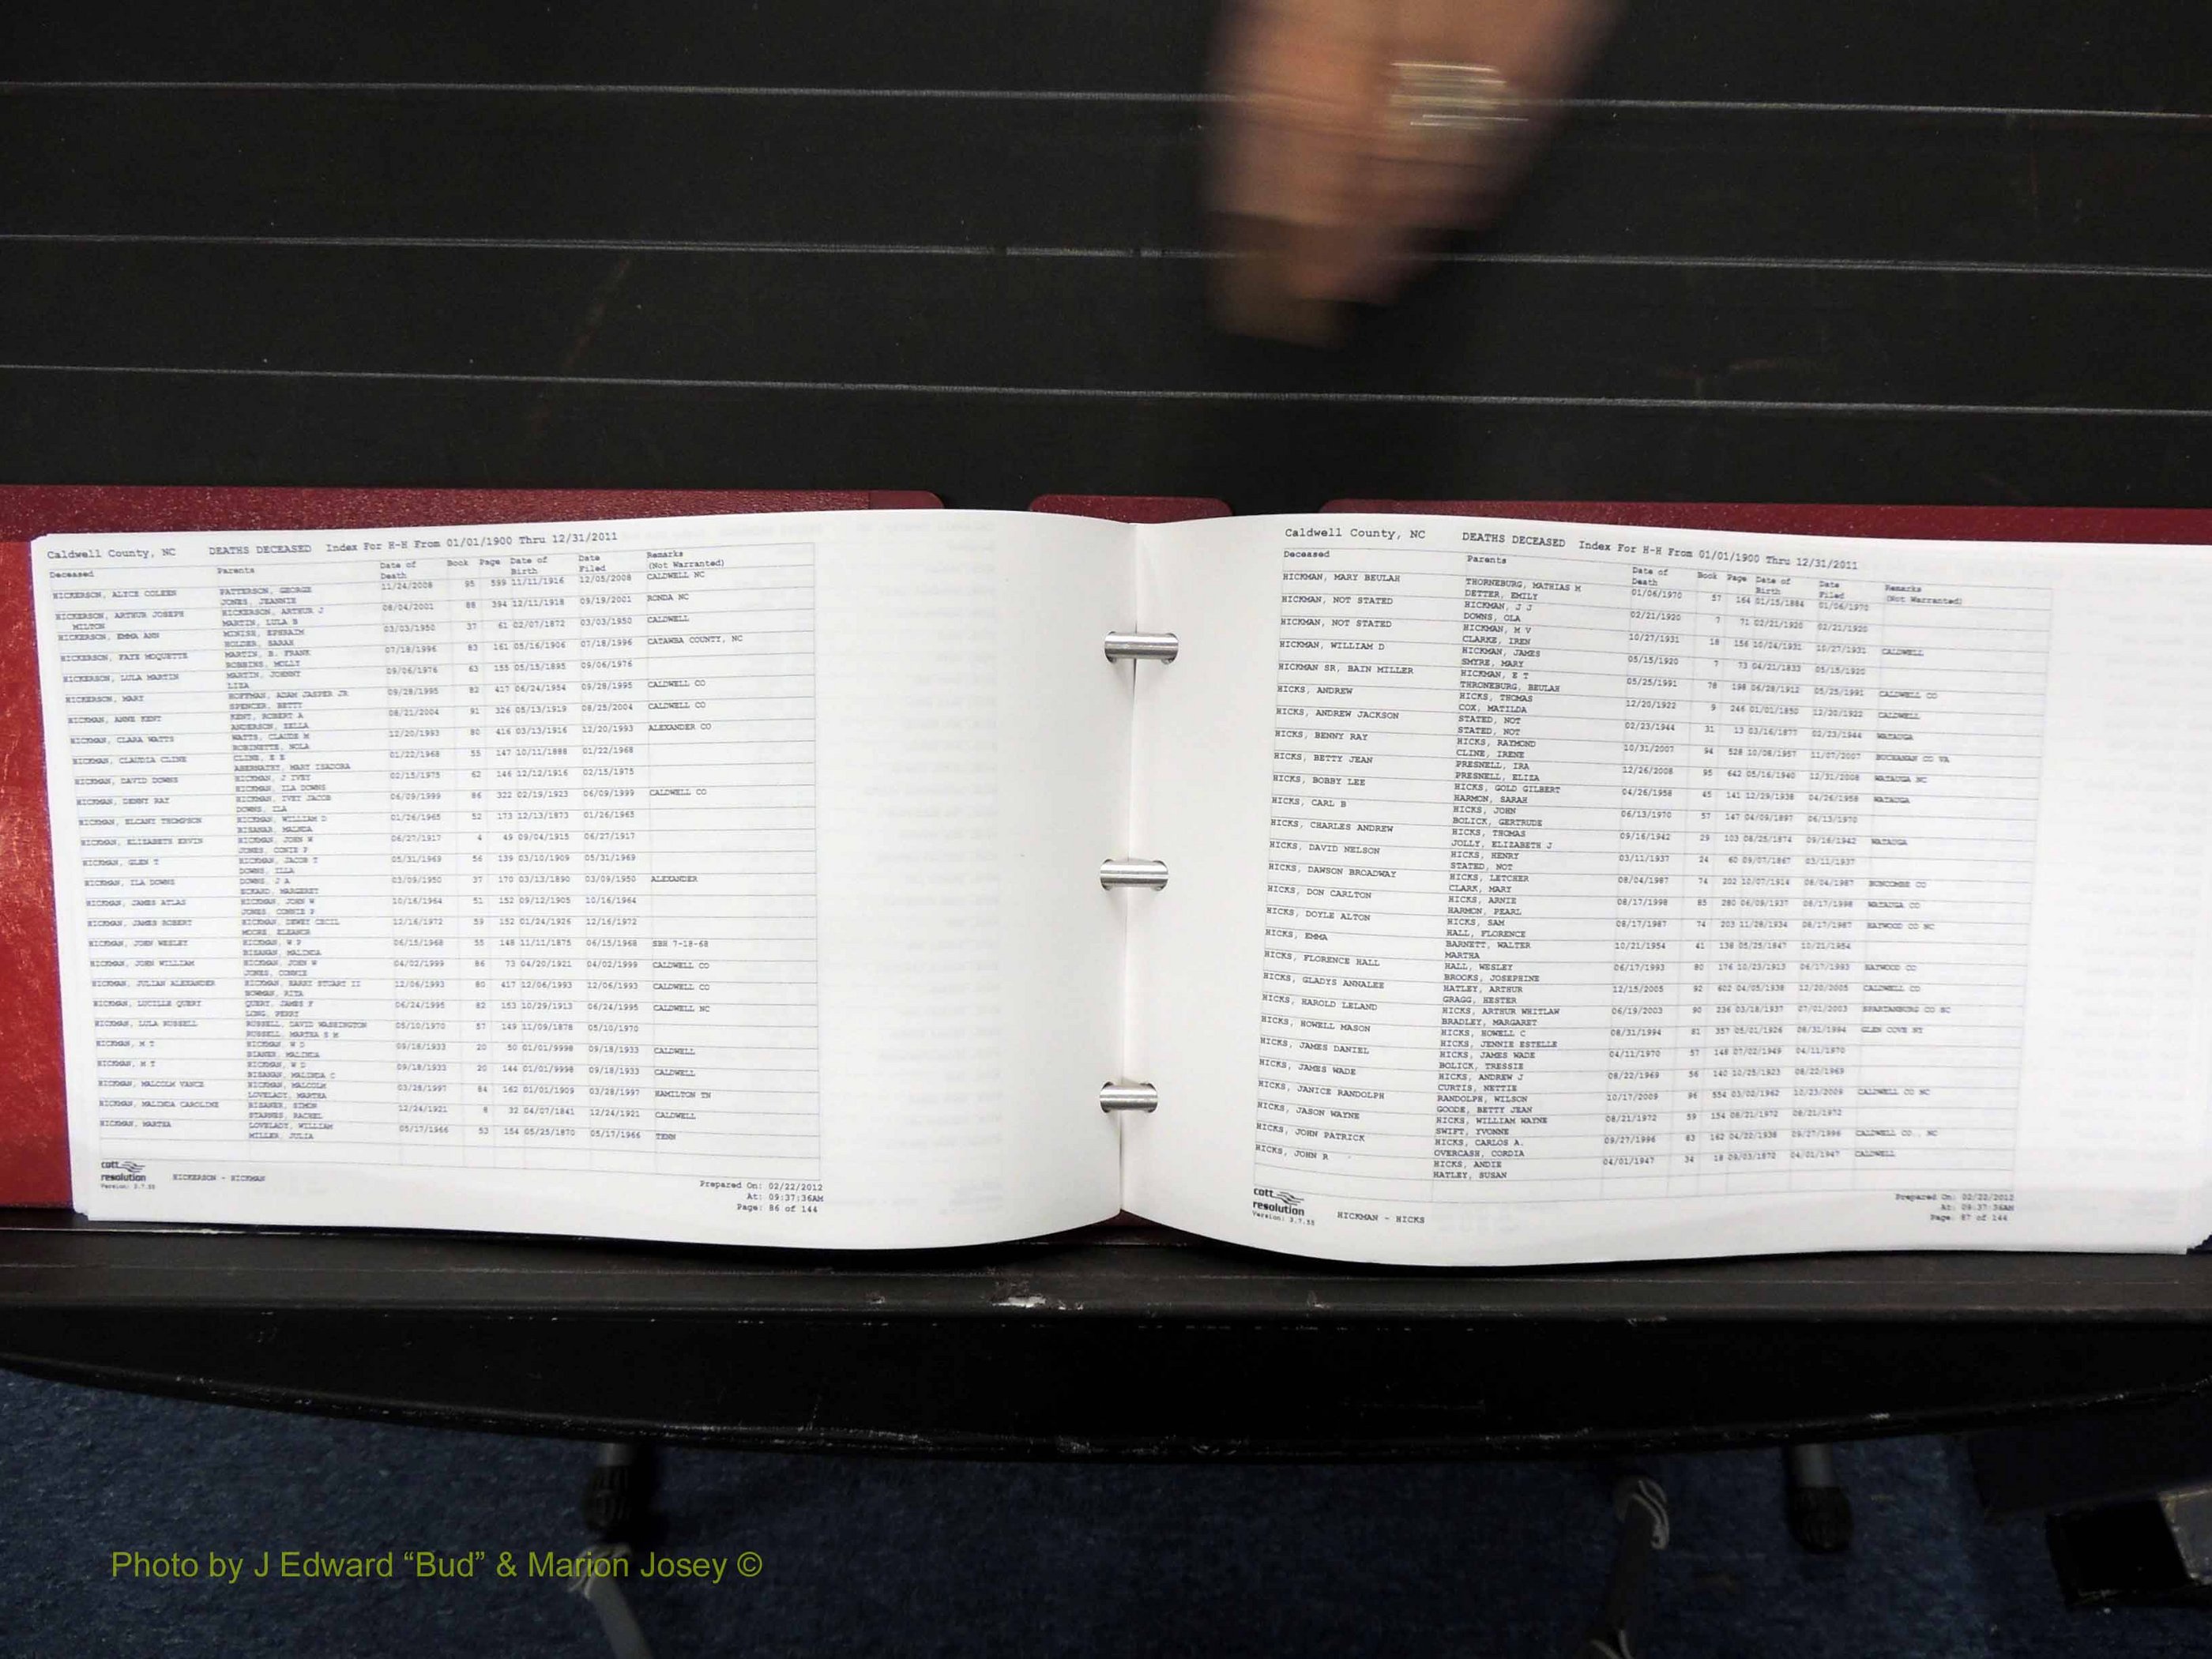 Caldwell County, NC DEATHS DECEASED Index For H-H From 01/01/1900 Thru 12/31/2011
Deceased Parents Date of Death Book Page Date of Birth Date Filed Remarks (Not Warranted)
HICKERSON, ALYCE COLEEN PATTERSON, GEORGE 11/24/2008 95 599 11/11/1916 12/05/2008 CALDWELL NC
JONES, JEANNIE
HICKERSON, ARTHUR JOSEPH HICKERSON, ARTHUR J 08/04/2001 88 394 12/11/1918 09/19/2001 RONDA NC
MILTON MARTIN, LULA B
HICKERSON, EMMA ANN MINISH, EPHRAIM 03/03/1950 37 61 02/07/1872 03/03/1950 CALDWELL
HOLDER, SARAH
HICKERSON, FAYE MOQUETTE MARTIN, B. FRANK 07/18/1996 83 161 05/16/1906 07/18/1996 CATAWBA COUNTY, NC
ROBBINS, MOLLY
HICKERSON, LULA MARTIN MARTIN, JOHNNY 09/06/1976 63 155 05/15/1895 09/06/1976
LIZA
HICKERSON, MARY HOFFMAN, ADAM JASPER JR 09/28/1995 82 417 06/24/1954 09/28/1995 CALDWELL CO
SPENCER, BETTY
HICKMAN, ANNE KENT KENT, ROBERT A 08/21/2004 91 326 05/13/1919 08/25/2004 CALDWELL CO
ANDERSON, ZELLA
HICKMAN, CLARA WATTS WATTS, CLAUDE M 12/20/1993 80 416 03/13/1916 12/20/1993 ALEXANDER CO
ROBINETTE, NOLA
HICKMAN, CLAUDIA CLINE CLINE, E E 01/22/1968 55 147 10/11/1888 01/22/1968
ABERNATHY, MARY ISADORA
HICKMAN, DAVID DOWNS HICKMAN, J IVEY 02/15/1975 62 146 12/12/1916 02/15/1975
HICKMAN, ILA DOWNS
HICKMAN, DENNY RAY HICKMAN, IVEY JACOB 06/09/1999 86 322 02/19/1923 06/09/1999 CALDWELL CO
DOWNS, ILA
HICKMAN, ELCANY THOMPSON HICKMAN, WILLIAM D 01/26/1965 52 173 12/13/1873 01/26/1965
BISANAR, MALINDA
HICKMAN, ELIZABETH ERVIN HICKMAN, JOHN W 06/27/1917 4 49 09/04/1915 06/27/1917
JONES, CONIE P
HICKMAN, GLEN T HICKMAN, JACOB T 05/31/1969 56 139 03/10/1909 05/31/1969
DOWNS, ILLA
HICKMAN, ILA DOWNS DOWNS, J A 03/09/1950 37 170 03/13/1890 03/09/1950 ALEXANDER
ECKARD, MARGERET
HICKMAN, JAMES ATLAS HICKMAN, JOHN W 10/16/1964 51 152 09/12/1905 10/16/1964
JONES, CONNIE P
HICKMAN, JAMES ROBERT HICKMAN, DEWEY CECIL 12/16/1972 59 152 01/24/1926 12/16/1972
MOORE, ELEANOR
HICKMAN, JOHN WESLEY HICKMAN, W P 06/15/1968 55 148 11/11/1875 06/15/1968 SBH 7-18-68
BISANAR, MALINDA
HICKMAN, JOHN WILLIAM HICKMAN, JOHN W 04/02/1999 86 73 04/20/1921 04/02/1999 CALDWELL CO
JONES, CONNIE
HICKMAN, JULIAN ALEXANDER HICKMAN, HARRY STUART II 12/06/1993 80 417 12/06/1993 12/06/1993 CALDWELL CO
BOWMAN, RITA
HICKMAN, LUCILLE QUERY QUERY, JAMES F 06/24/1995 82 153 10/29/1913 06/24/1995 CALDWELL NC
LONG, PERRY
HICKMAN, LULA RUSSELL RUSSELL, DAVID WASHINGTON 05/10/1970 57 149 11/09/1878 05/10/1970
RUSSELL, MARTHA S M
HICKMAN, M T HICKMAN, W D 09/18/1933 20 50 01/01/9998 09/18/1933 CALDWELL
BIANER, MALINDA
HICKMAN, M T HICKMAN, W D 09/18/1933 20 144 01/01/9998 09/18/1933 CALDWELL
BISANAR, MALINDA C
HICKMAN, MALCOLM VANCE HICKMAN, MALCOLM 03/28/1997 84 162 01/01/1909 03/28/1997 HAMILTON TN
LOVELADY, MARTHA
HICKMAN, MALINDA CAROLINE BISANER, SIMON 12/24/1921 8 32 04/07/1841 12/24/1921 CALDWELL
STARNES, RACHEL
HICKMAN, MARTHA LOVELADY, WILLIAM 05/17/1966 53 154 05/25/1870 05/17/1966 TENN
MILLER, JULIA
cott resolution
Version: 3.7.55
HICKERSON - HICKMAN
Prepared On: 02/22/2012
At: 09:37:36AM
Page: 86 of 144
Caldwell County, NC DEATHS DECEASED Index For H-H From 01/01/1900 Thru 12/31/2011
Deceased Parents Date of Death Book Page Date of Birth Date Filed Remarks (Not Warranted)
HICKMAN, MARY BEULAH THORNEBURG, MATHIAS M 01/06/1970 57 164 01/15/1884 01/06/1970
DETTER, EMILY
HICKMAN, NOT STATED HICKMAN, J J 02/21/1920 7 71 02/21/1920 02/21/1920
DOWNS, OLA
HICKMAN, NOT STATED HICKMAN, M V 10/27/1931 18 156 10/24/1931 10/27/1931 CALDWELL
CLARKE, IREN
HICKMAN, WILLIAM D HICKMAN, JAMES 05/15/1920 7 73 04/21/1833 05/15/1920
SMYRE, MARY
HICKMAN SR, BAIN MILLER HICKMAN, E T 05/25/1991 78 198 06/28/1912 05/25/1991 CALDWELL CO
THRONEBURG, BEULAH
HICKS, ANDREW HICKS, THOMAS 12/20/1922 9 246 01/01/1850 12/20/1922 CALDWELL
COX, MATILDA
HICKS, ANDREW JACKSON STATED, NOT 02/23/1944 31 13 03/16/1877 02/23/1944 WATAUGA
STATED, NOT
HICKS, BENNY RAY HICKS, RAYMOND 10/31/2007 94 528 10/08/1957 11/07/2007 BUCHANAN CO VA
CLINE, IRENE
HICKS, BETTY JEAN PRESNELL, IRA 12/26/2008 95 642 05/16/1940 12/31/2008 WATAUGA NC
PRESNELL, ELIZA
HICKS, BOBBY LEE HICKS, GOLD GILBERT 04/26/1958 45 141 12/29/1938 04/26/1958 WATAUGA
HARMON, SARAH
HICKS, CARL B HICKS, JOHN 06/13/1970 57 147 04/09/1897 06/13/1970
BOLICK, GERTRUDE
HICKS, CHARLES ANDREW HICKS, THOMAS 09/16/1942 29 103 08/25/1874 09/16/1942 WATAUGA
JOLLY, ELIZABETH J
HICKS, DAVID NELSON HICKS, HENRY 03/11/1937 24 60 09/07/1867 03/11/1937
STATED, NOT
HICKS, DAWSON BROADWAY HICKS, LETCHER 08/04/1987 74 202 10/07/1914 08/04/1987 BUNCOMBE CO
CLARK, MARY
HICKS, DON CARLTON HICKS, ARNIE 08/17/1998 85 280 06/09/1937 08/17/1998 WATAUGA CO
HARMON, PEARL
HICKS, DOYLE ALTON HICKS, SAM 08/17/1987 74 203 11/28/1934 08/17/1987 HAYWOOD CO NC
HALL, FLORENCE
HICKS, EMMA BARNETT, WALTER 10/21/1954 41 138 05/25/1847 10/21/1954
MARTHA
HICKS, FLORENCE HALL HALL, WESLEY 06/17/1993 80 176 10/23/1913 06/17/1993 HAYWOOD CO
BROOKS, JOSEPHINE
HICKS, GLADYS ANNALEE HATLEY, ARTHUR 12/15/2005 92 602 04/05/1938 12/20/2005 CALDWELL CO
GRAGG, HESTER
HICKS, HAROLD LELAND HICKS, ARTHUR WHITLAW 06/19/2003 90 236 03/18/1937 07/01/2003 SPARTANBURG CO SC
BRADLEY, MARGARET
HICKS, HOWELL MASON HICKS, HOWELL C 08/31/1994 81 357 05/01/1926 08/31/1994 GLEN COVE NY
HICKS, JENNIE ESTELLE
HICKS, JAMES DANIEL HICKS, JAMES WADE 04/11/1970 57 148 07/02/1949 04/11/1970
BOLICK, TRESSIE
HICKS, JAMES WADE HICKS, ANDREW J 08/22/1969 56 140 10/25/1923 08/22/1969
CURTIS, NETTIE
HICKS, JANICE RANDOLPH RANDOLPH, WILSON 10/17/2009 96 554 03/02/1962 10/23/2009 CALDWELL CO NC
GOODE, BETTY JEAN
HICKS, JASON WAYNE HICKS, WILLIAM WAYNE 08/21/1972 59 154 08/21/1972 08/21/1972
SWIFT, YVONNE
HICKS, JOHN PATRICK HICKS, CARLOS A. 09/27/1996 83 162 04/22/1938 09/27/1996 CALDWELL CO., NC
OVERCASH, CORDIA
HICKS, JOHN R HICKS, ANDIE 04/01/1947 34 18 09/03/1872 04/01/1947 CALDWELL
HATLEY, SUSAN
cott resolution
Version: 3.7.55
HICKMAN - HICKS
Prepared On: 02/22/2012
At: 09:37:36AM
Page: 87 of 144
Photo by J Edward “Bud” & Marion Josey ©